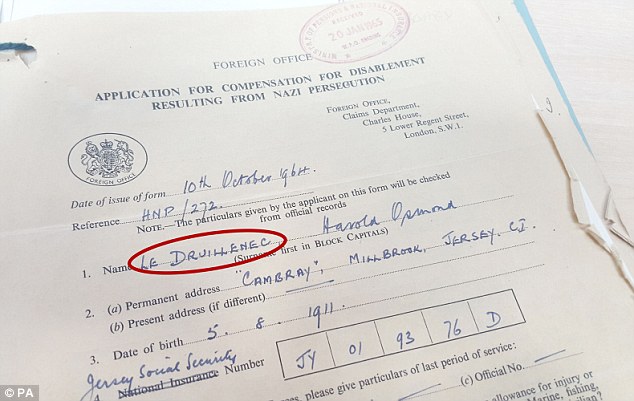 RECEIVED
20 JAN 1965
FOREIGN OFFICE
APPLICATION FOR COMPENSATION FOR DISABLEMENT
RESULTING FROM NAZI PERSECUTION
FOREIGN OFFICE,
Claims Department,
Charles House,
5 Lower Regent Street,
London, S.W.1.
FOREIGN OFFICE
Date of issue of form 10th October 1964.
Reference HNP/272.
NOTE.—The particulars given by the applicant on this form will be checked
from official records
1. Name LE DRUILLENEC Harold Osmond
(Surname first in BLOCK CAPITALS)
2. (a) Permanent address "CAMBRAY", MILLBROOK, JERSEY. C.I.
(b) Present address (if different)
3. Date of birth 5. 8. 1911.
Jersey Social Security
4. National Insurance Number JY 01 93 76 D
please give particulars of last period of service:
(c) Official No.
allowance for injury or
Marine, fishing,
© PA